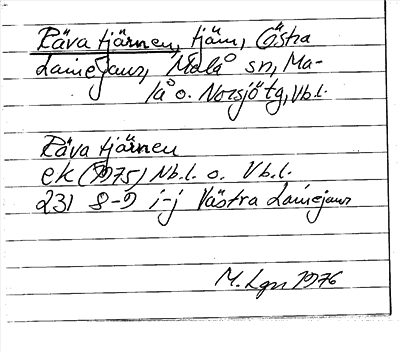 Räva tjärnen, tjärn, (Östra
Lainejaur, Malå sn, Ma-
lå o. Norsjö tg, Vb.l.
Räva tjärnen
ek (1975) Nb.l. o. Vb.l.
231 8-9 i-j Västra Lainejaur
M. Lgn 1976